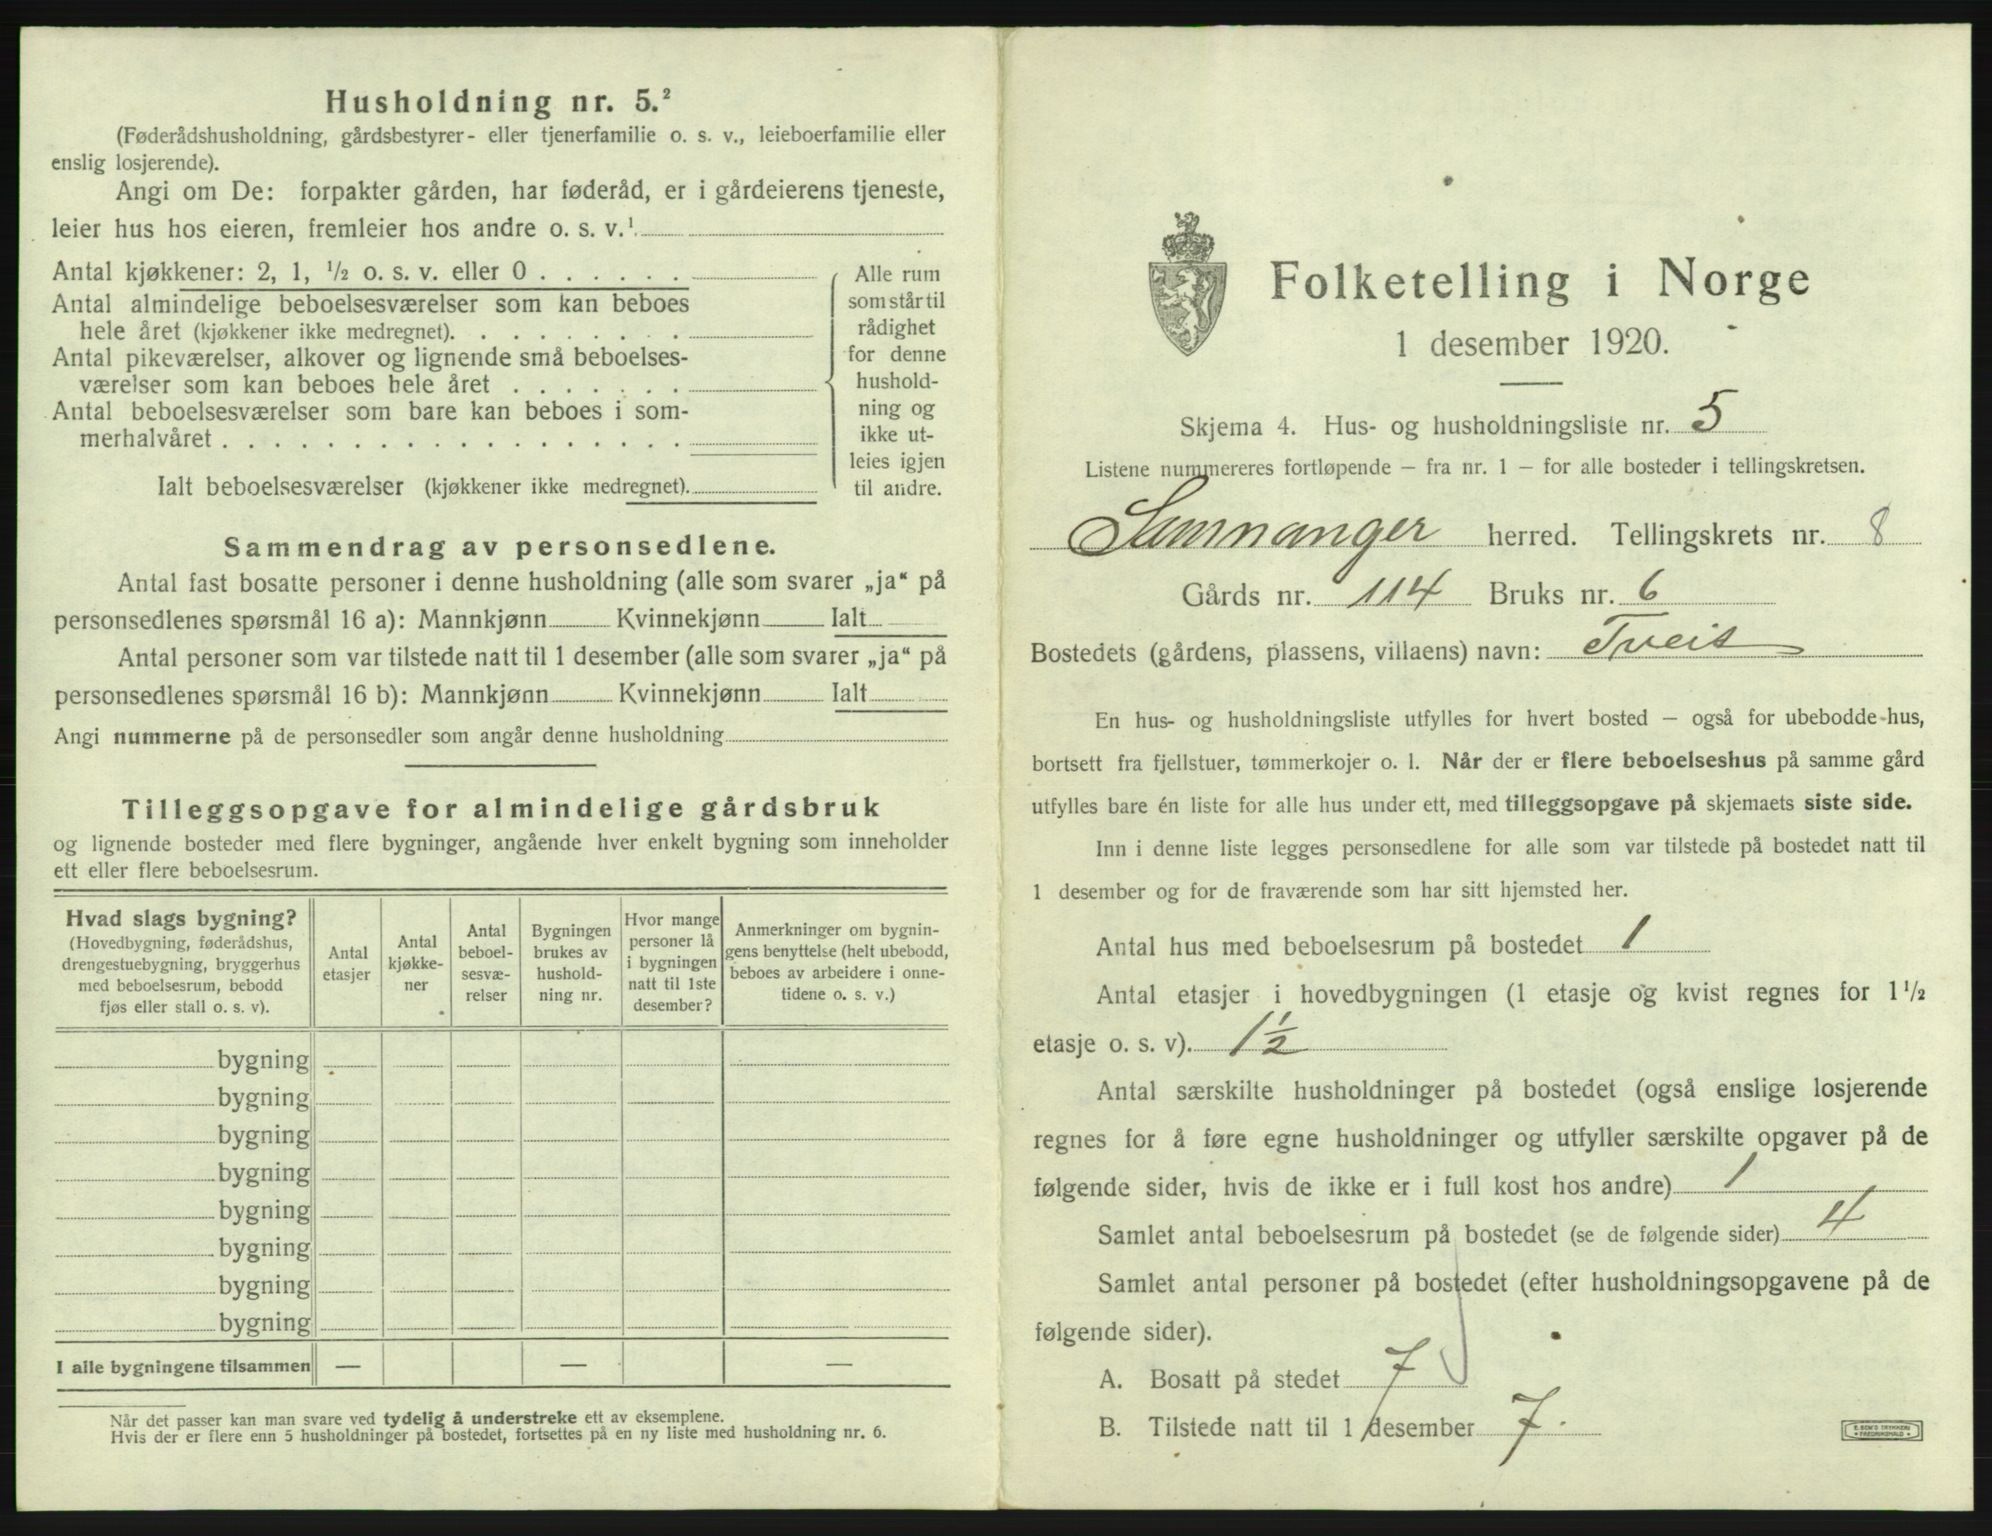 Husholdning nr. 5.²
(Føderådshusholdning, gårdsbestyrer- eller tjenerfamilie o. s. v., leieboerfamilie eller
enslig losjerende).
Angi om De: forpakter gården, har føderåd, er i gårdeierens tjeneste,
leier hus hos eieren, fremleier hos andre o. s. v.¹
Antal kjøkkener: 2, 1, ½ o. s. v. eller 0
Antal almindelige beboelsesværelser som kan beboes
hele året (kjøkkener ikke medregnet).
Antal pikeværelser, alkover og lignende små beboelses-
værelser som kan beboes hele året
Antal beboelsesværelser som bare kan beboes i som-
merhalvåret
Ialt beboelsesværelser (kjøkkener ikke medregnet).
Alle rum
som står til
rådighet
for denne
hushold-
ning og
ikke ut-
leies igjen
til andre.
Sammendrag av personsedlene.
Antal fast bosatte personer i denne husholdning (alle som svarer „ja“ på
personsedlenes spørsmål 16 a): Mannkjønn Kvinnekjønn Ialt
Antal personer som var tilstede natt til 1 desember (alle som svarer „ja“ på
personsedlenes spørsmål 16 b): Mannkjønn Kvinnekjønn Ialt
Angi nummerne på de personsedler som angår denne husholdning
Tilleggsopgave for almindelige gårdsbruk
og lignende bosteder med flere bygninger, angående hver enkelt bygning som inneholder
ett eller flere beboelsesrum.
Hvad slags bygning?
(Hovedbygning, føderådshus,
drengestuebygning, bryggerhus
med beboelsesrum, bebodd
fjøs eller stall o. s. v).
Antal
etasjer
Antal
kjøkke-
ner
Antal
beboel-
sesvæ-
relser
Bygningen
brukes av
hushold-
ning nr.
Hvor mange
personer lå
i bygningen
natt til 1ste
desember?
Anmerkninger om bygnin-
gens benyttelse (helt ubebodd,
beboes av arbeidere i onne-
tidene o. s. v.)
bygning
bygning
bygning
bygning
bygning
bygning
bygning
bygning
I alle bygningene tilsammen — — —
Når det passer kan man svare ved tydelig å understreke ett av eksemplene.
Hvis der er flere enn 5 husholdninger på bostedet, fortsettes på en ny liste med husholdning nr. 6.
Folketelling i Norge
1 desember 1920.
Skjema 4. Hus- og husholdningsliste nr. 5
Listene nummereres fortløpende – fra nr. 1 – for alle bosteder i tellingskretsen.
Samnanger herred. Tellingskrets nr. 8
Gårds nr. 114 Bruks nr. 6
Bostedets (gårdens, plassens, villaens) navn: Tveit
En hus- og husholdningsliste utfylles for hvert bosted – også for ubebodde hus,
bortsett fra fjellstuer, tømmerkojer o. l. Når der er flere beboelseshus på samme gård
utfylles bare én liste for alle hus under ett, med tilleggsopgave på skjemaets siste side.
Inn i denne liste legges personsedlene for alle som var tilstede på bostedet natt til
1 desember og for de fraværende som har sitt hjemsted her.
Antal hus med beboelsesrum på bostedet 1
Antal etasjer i hovedbygningen (1 etasje og kvist regnes for 1½
etasje o. s. v). 1½
Antal særskilte husholdninger på bostedet (også enslige losjerende
regnes for å føre egne husholdninger og utfyller særskilte opgaver på de
følgende sider, hvis de ikke er i full kost hos andre) 1
Samlet antal beboelsesrum på bostedet (se de følgende sider) 4
Samlet antal personer på bostedet (efter husholdningsopgavene på de
følgende sider).
A. Bosatt på stedet 7
B. Tilstede natt til 1 desember 7.